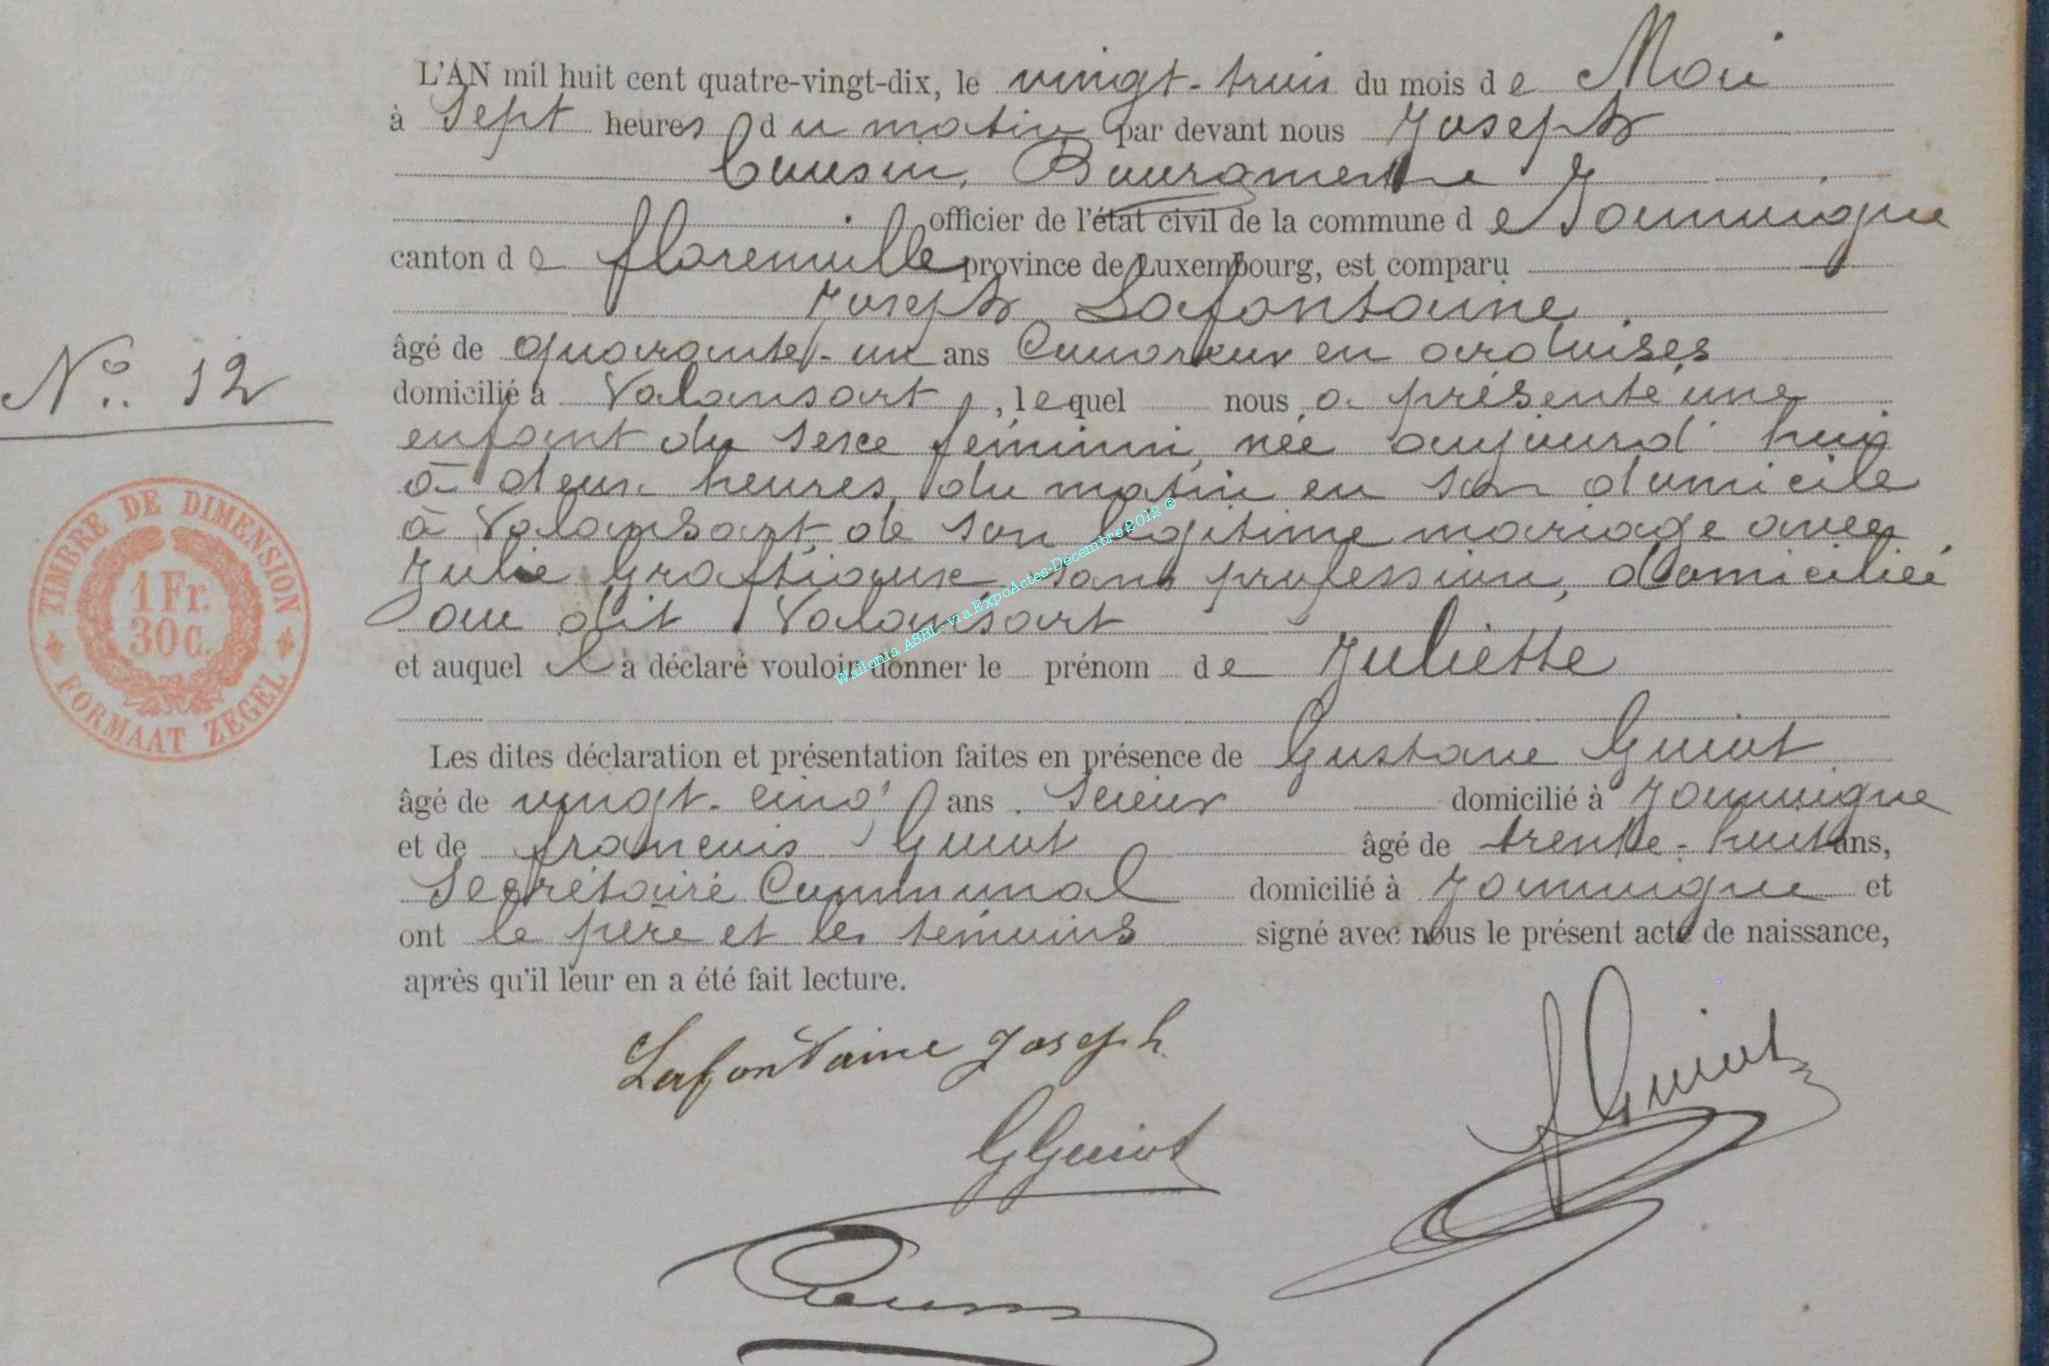 L'AN mil huit cent quatre-vingt-dix, le vingt-trois du mois de Mai
à Sept heures du matin par devant nous Joseph
Cousin, Bourgmestre
officier de l'état civil de la commune de Jamoigne
canton de florenville province de Luxembourg, est comparu
Joseph Lafontaine
âgé de quarante-un ans Couvreur en ardoises
domicilié à Valansart, lequel nous a présenté une
enfant du sexe féminin, née aujourd'hui
à deux heures du matin en son domicile
à Valansart de son légitime mariage avec
Julie sans profession, domiciliée
au dit Valansart
et auquel il a déclaré vouloir donner le prénom de Juliette
Les dites déclaration et présentation faites en présence de Gustave Guiot
âgé de vingt-cinq ans Scieur domicilié à Jamoigne
et de françois Guiot âgé de trente-huit ans,
Secrétaire Communal domicilié à Jamoigne et
ont le père et les témoins signé avec nous le présent acte de naissance,
après qu'il leur en a été fait lecture.
No. 12
TIMBRE DE DIMENSION
1 Fr.
30 C.
FORMAAT ZEGEL
Wallonia ASBL - via ExpoActes-Décembre 2012
Lafontaine Joseph
GGuiot
f Guiot
Cousin